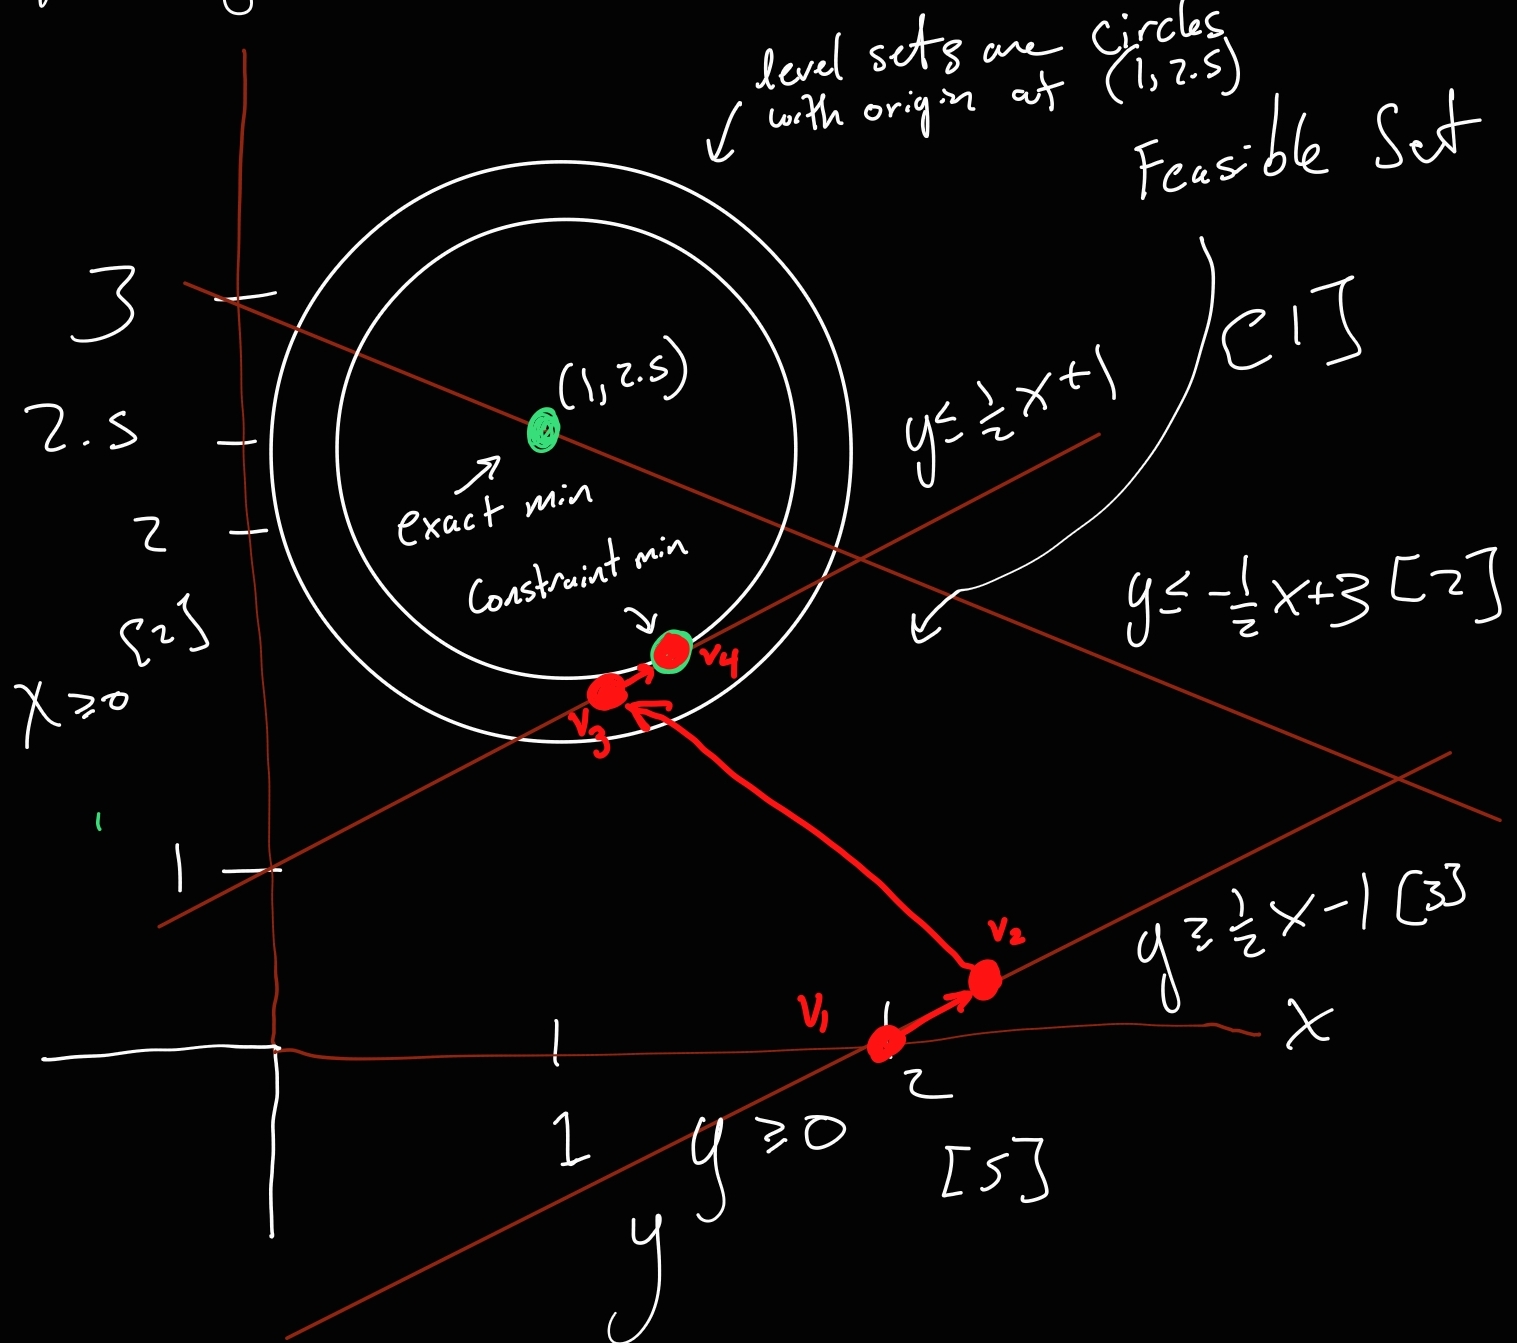 level sets are circles
with origin at (1, 2.5)
Feasible Set
3
[1]
(1, 2.5)
y ≤ 1/2 x + 1
2.5
exact min
2
Constraint min
y ≤ -1/2 x + 3 [2]
[2]
x ≥ 0
v4
v3
1
y ≥ 1/2 x - 1 [3]
v2
v1
x
2
1
y ≥ 0
[5]
y